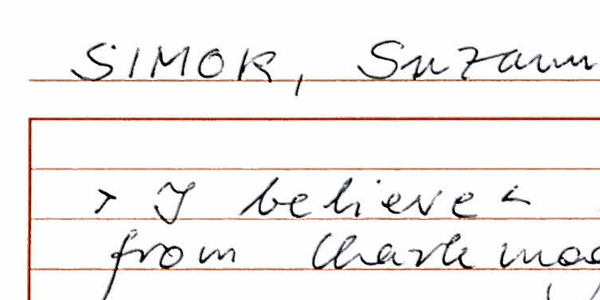 SIMOR, Suzann
> I believe <
from Charlemag